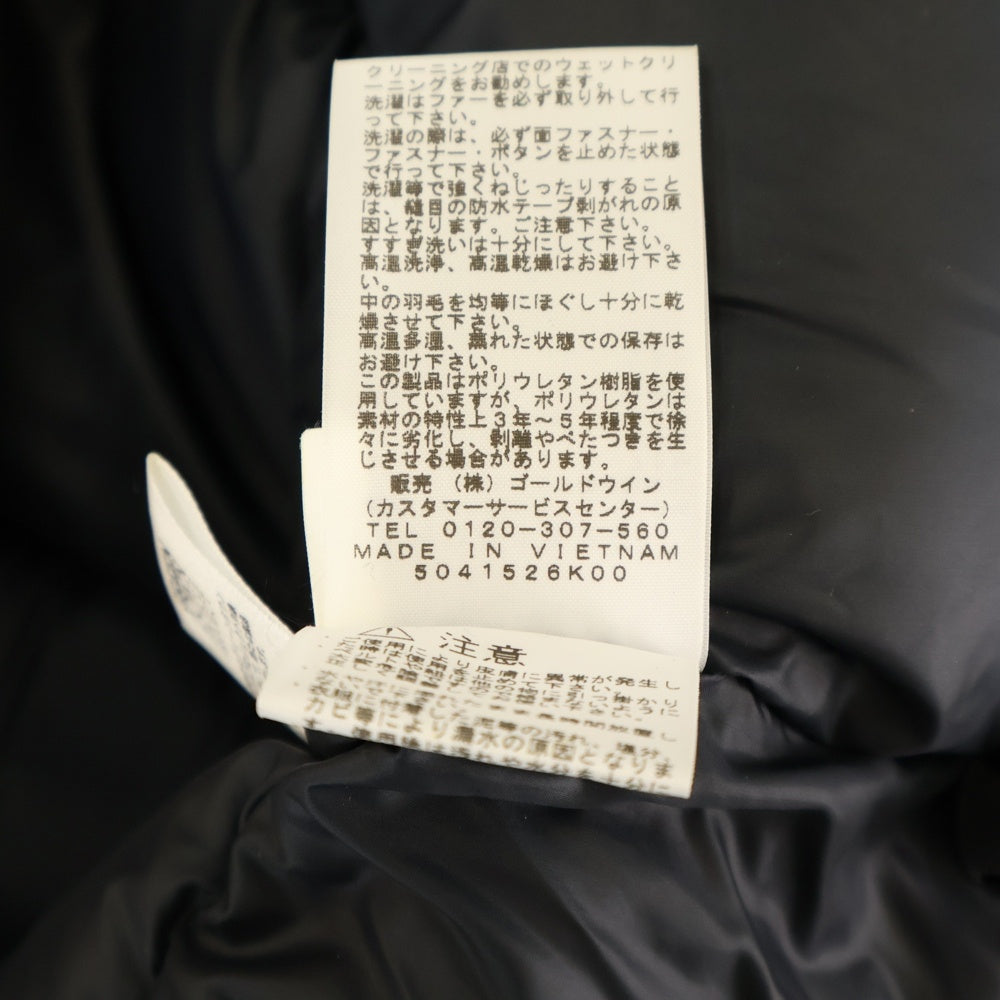 クリーニング店でのウェットクリ
ーニングをお勧めします。
洗濯はファーを必ず取り外して行
って下さい。
洗濯の際は、必ず面ファスナー・
ファスナー・ボタンを止めた状態
で行って下さい。
洗濯等で強くねじったりすること
は、縫目の防水テープ剥がれの原
因となります。ご注意下さい。
すすぎ洗いは十分にして下さい。
高温洗浄、高温乾燥はお避け下さ
い。
中の羽毛を均等にほぐし十分に乾
燥させて下さい。
高温多湿、蒸れた状態での保存は
お避け下さい。
この製品はポリウレタン樹脂を使
用していますが、ポリウレタンは
素材の特性上3年～5年程度で徐
々に劣化し、剥離やべたつきを生
じさせる場合があります。
販売 (株)ゴールドウイン
(カスタマーサービスセンター)
TEL 0120-307-560
MADE IN VIETNAM
5041526K00
注意
使用により皮膚に異常が発生し
時は使用を止めて下さい。
カビ等により漏水の原因となりま